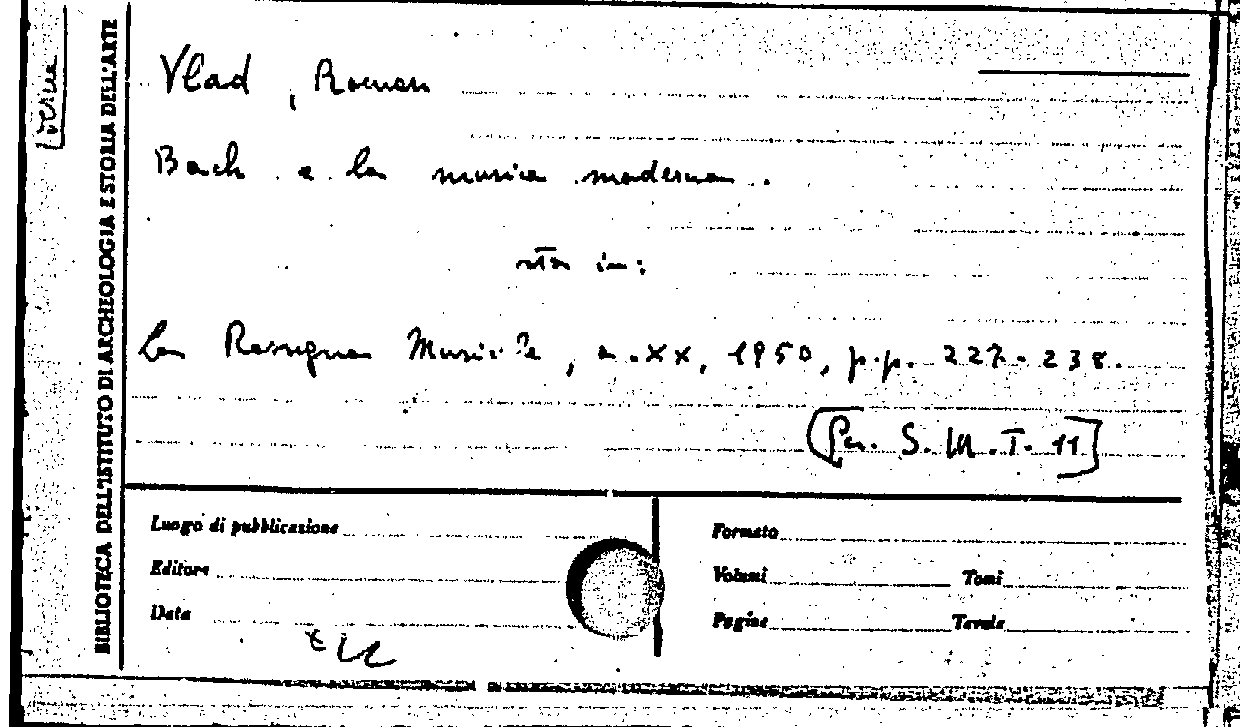 BIBLIOTECA DELL'ISTITUTO DI ARCHEOLOGIA E STORIA DELL'ARTE
Vlad, Roman
Bach e la musica moderna.
sta in:
La Rassegna Musicale, a. XX, 1950, p.p. 227-238.
[Per. S. M. T. 11]
Luogo di pubblicazione
Editore
Data
Formato
Volumi Tomi
Pagine Tavole